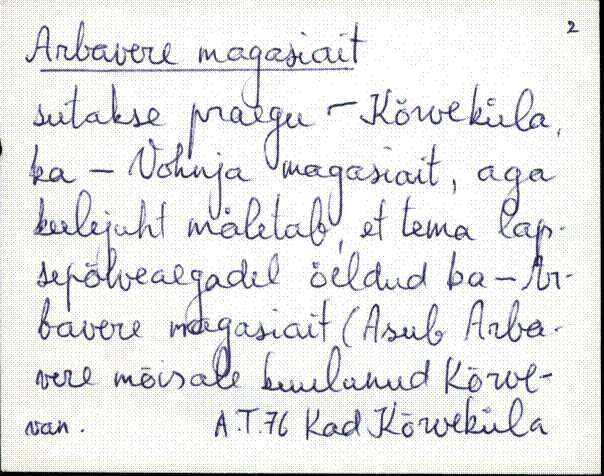 2
Arbavere magasiait
sutakse praegu - Kõrveküla,
ka - Võhnja magasiait, aga
keelejuht mäletab, et tema lap-
sepõlveaegadel öeldud ka - Ar-
bavere magasiait (Asub Arba-
vere mõisale kuulunud Kõrve-
van. A.T.76 Kad Kõrveküla